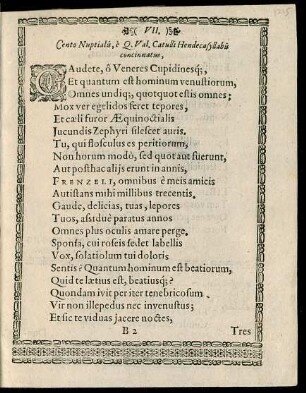 VII.
Cento Nuptialis, è Q. Val. Catulli Hendecasyllabis
concinnatus,
GAudete, ô Veneres Cupidinesq;,
Et quantum est hominum venustiorum,
Omnes undiq;, quotquot estis omnes;
Mox ver egelidos feret tepores,
Et cæli furor Æquinoctialis
Jucundis Zephyri silescet auris.
Tu, qui flosculus es peritiorum,
Non horum modò, sed quot aut fuerunt,
Aut posthac aliis erunt in annis,
FRENZELI, omnibus è meis amicis
Antistans mihi millibus trecentis,
Gaude, delicias, tuas, lepores
Tuos, assiduè paratus annos
Omnes plus oculis amare perge.
Sponsa, cui roseis sedet labellis
Vox, solatiolum tui doloris
Sentis? Quantum hominum est beatiorum,
Quid te lætius est, beatiusq;?
Quondam ivit per iter tenebricosum
Vir non illepidus nec invenustus;
Et sic te viduas jacere noctes,
B 2 Tres